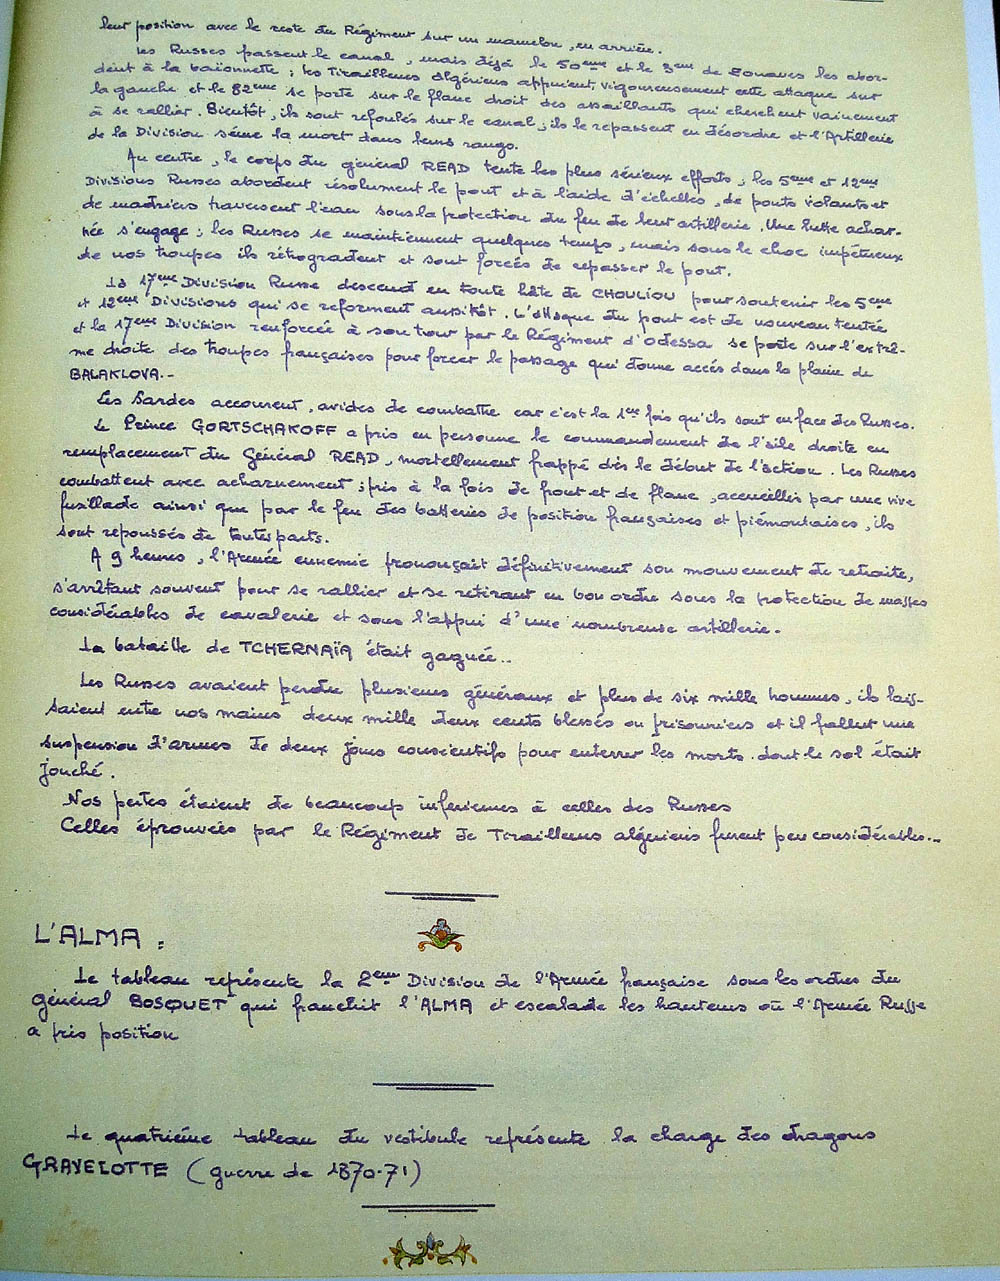 leur position avec le reste du Régiment sur un mamelon, en arrière.
Les Russes passent le canal, mais déjà le 50ème et le 3ème de Zouaves les abor-
dent à la baïonnette; les Tirailleurs algériens appuient vigoureusement cette attaque sur
la gauche et le 82ème se porte sur le flanc droit des assaillants qui cherchent vainement
à se rallier. Bientôt, ils sont refoulés sur le canal; ils le repassent en désordre et l'Artillerie
de la Division sème la mort dans leurs rangs.
Au centre, le corps du général READ tente les plus sérieux efforts; les 5ème et 12ème
Divisions Russes abordent résolument le pont et à l'aide d'échelles, de ponts volants et
de madriers traversent l'eau sous la protection du feu de leur artillerie. Une lutte achar-
née s'engage; les Russes se maintiennent quelques temps, mais sous le choc impétueux
de nos troupes ils rétrogradent et sont forcés de repasser le pont.
La 17ème Division Russe descend en toute hâte de CHOULIOU pour soutenir les 5ème
et 12ème Divisions qui se reforment aussitôt. L'attaque du pont est de nouveau tentée
et la 17ème Division renforcée à son tour par le Régiment d'Odessa se porte sur l'extrê-
me droite des troupes françaises pour forcer le passage qui donne accès dans la plaine de
BALAKLOVA.-
Les Sardes accourent, avides de combattre car c'est la 1ère fois qu'ils sont en face des Russes.
Le Prince GORTSCHAKOFF a pris en personne le commandement de l'aile droite en
remplacement du Général READ, mortellement frappé dès le début de l'action. Les Russes
combattent avec acharnement; pris à la fois de front et de flanc, accueillis par une vive
fusillade ainsi que par le feu des batteries de position françaises et piémontaises, ils
sont repoussés de toutes parts.
A 9 heures, l'Armée ennemie prononçait définitivement son mouvement de retraite,
s'arrêtant souvent pour se rallier et se retirant en bon ordre sous la protection de masses
considérables de cavalerie et sous l'appui d'une nombreuse artillerie.
La bataille de TCHERNAÏA était gagnée..
Les Russes avaient perdu plusieurs généraux et plus de six mille hommes, ils lais-
saient entre nos mains deux mille deux cents blessés ou prisonniers et il fallut une
suspension d'armes de deux jours consécutifs pour enterrer les morts dont le sol était
jouché.
Nos pertes étaient de beaucoup inférieures à celles des Russes
Celles éprouvées par le Régiment de Tirailleurs algériens furent peu considérables...
L'ALMA :
Le tableau représente la 2ème Division de l'Armée française sous les ordres du
général BOSQUET qui franchit l'ALMA et escalade les hauteurs où l'Armée Russe
a pris position
Le quatrième tableau du vestibule représente la charge des dragons
GRAVELOTTE (guerre de 1870-71)